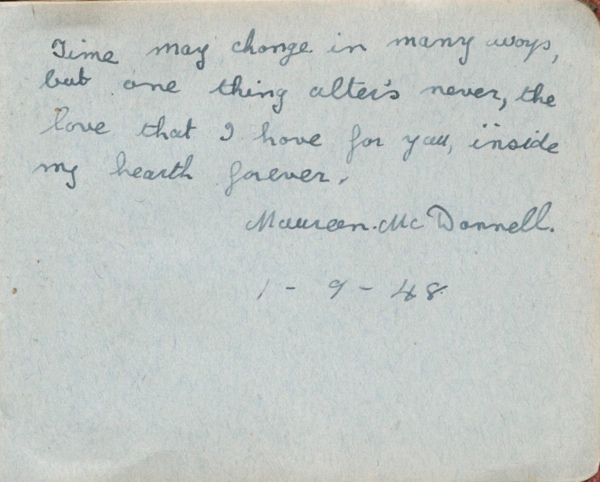 Time may change in many ways,
but one thing alter's never, the
love that I have for you, inside
my hearth forever.
Maureen. Mc Donnell.
1 - 9 - 48